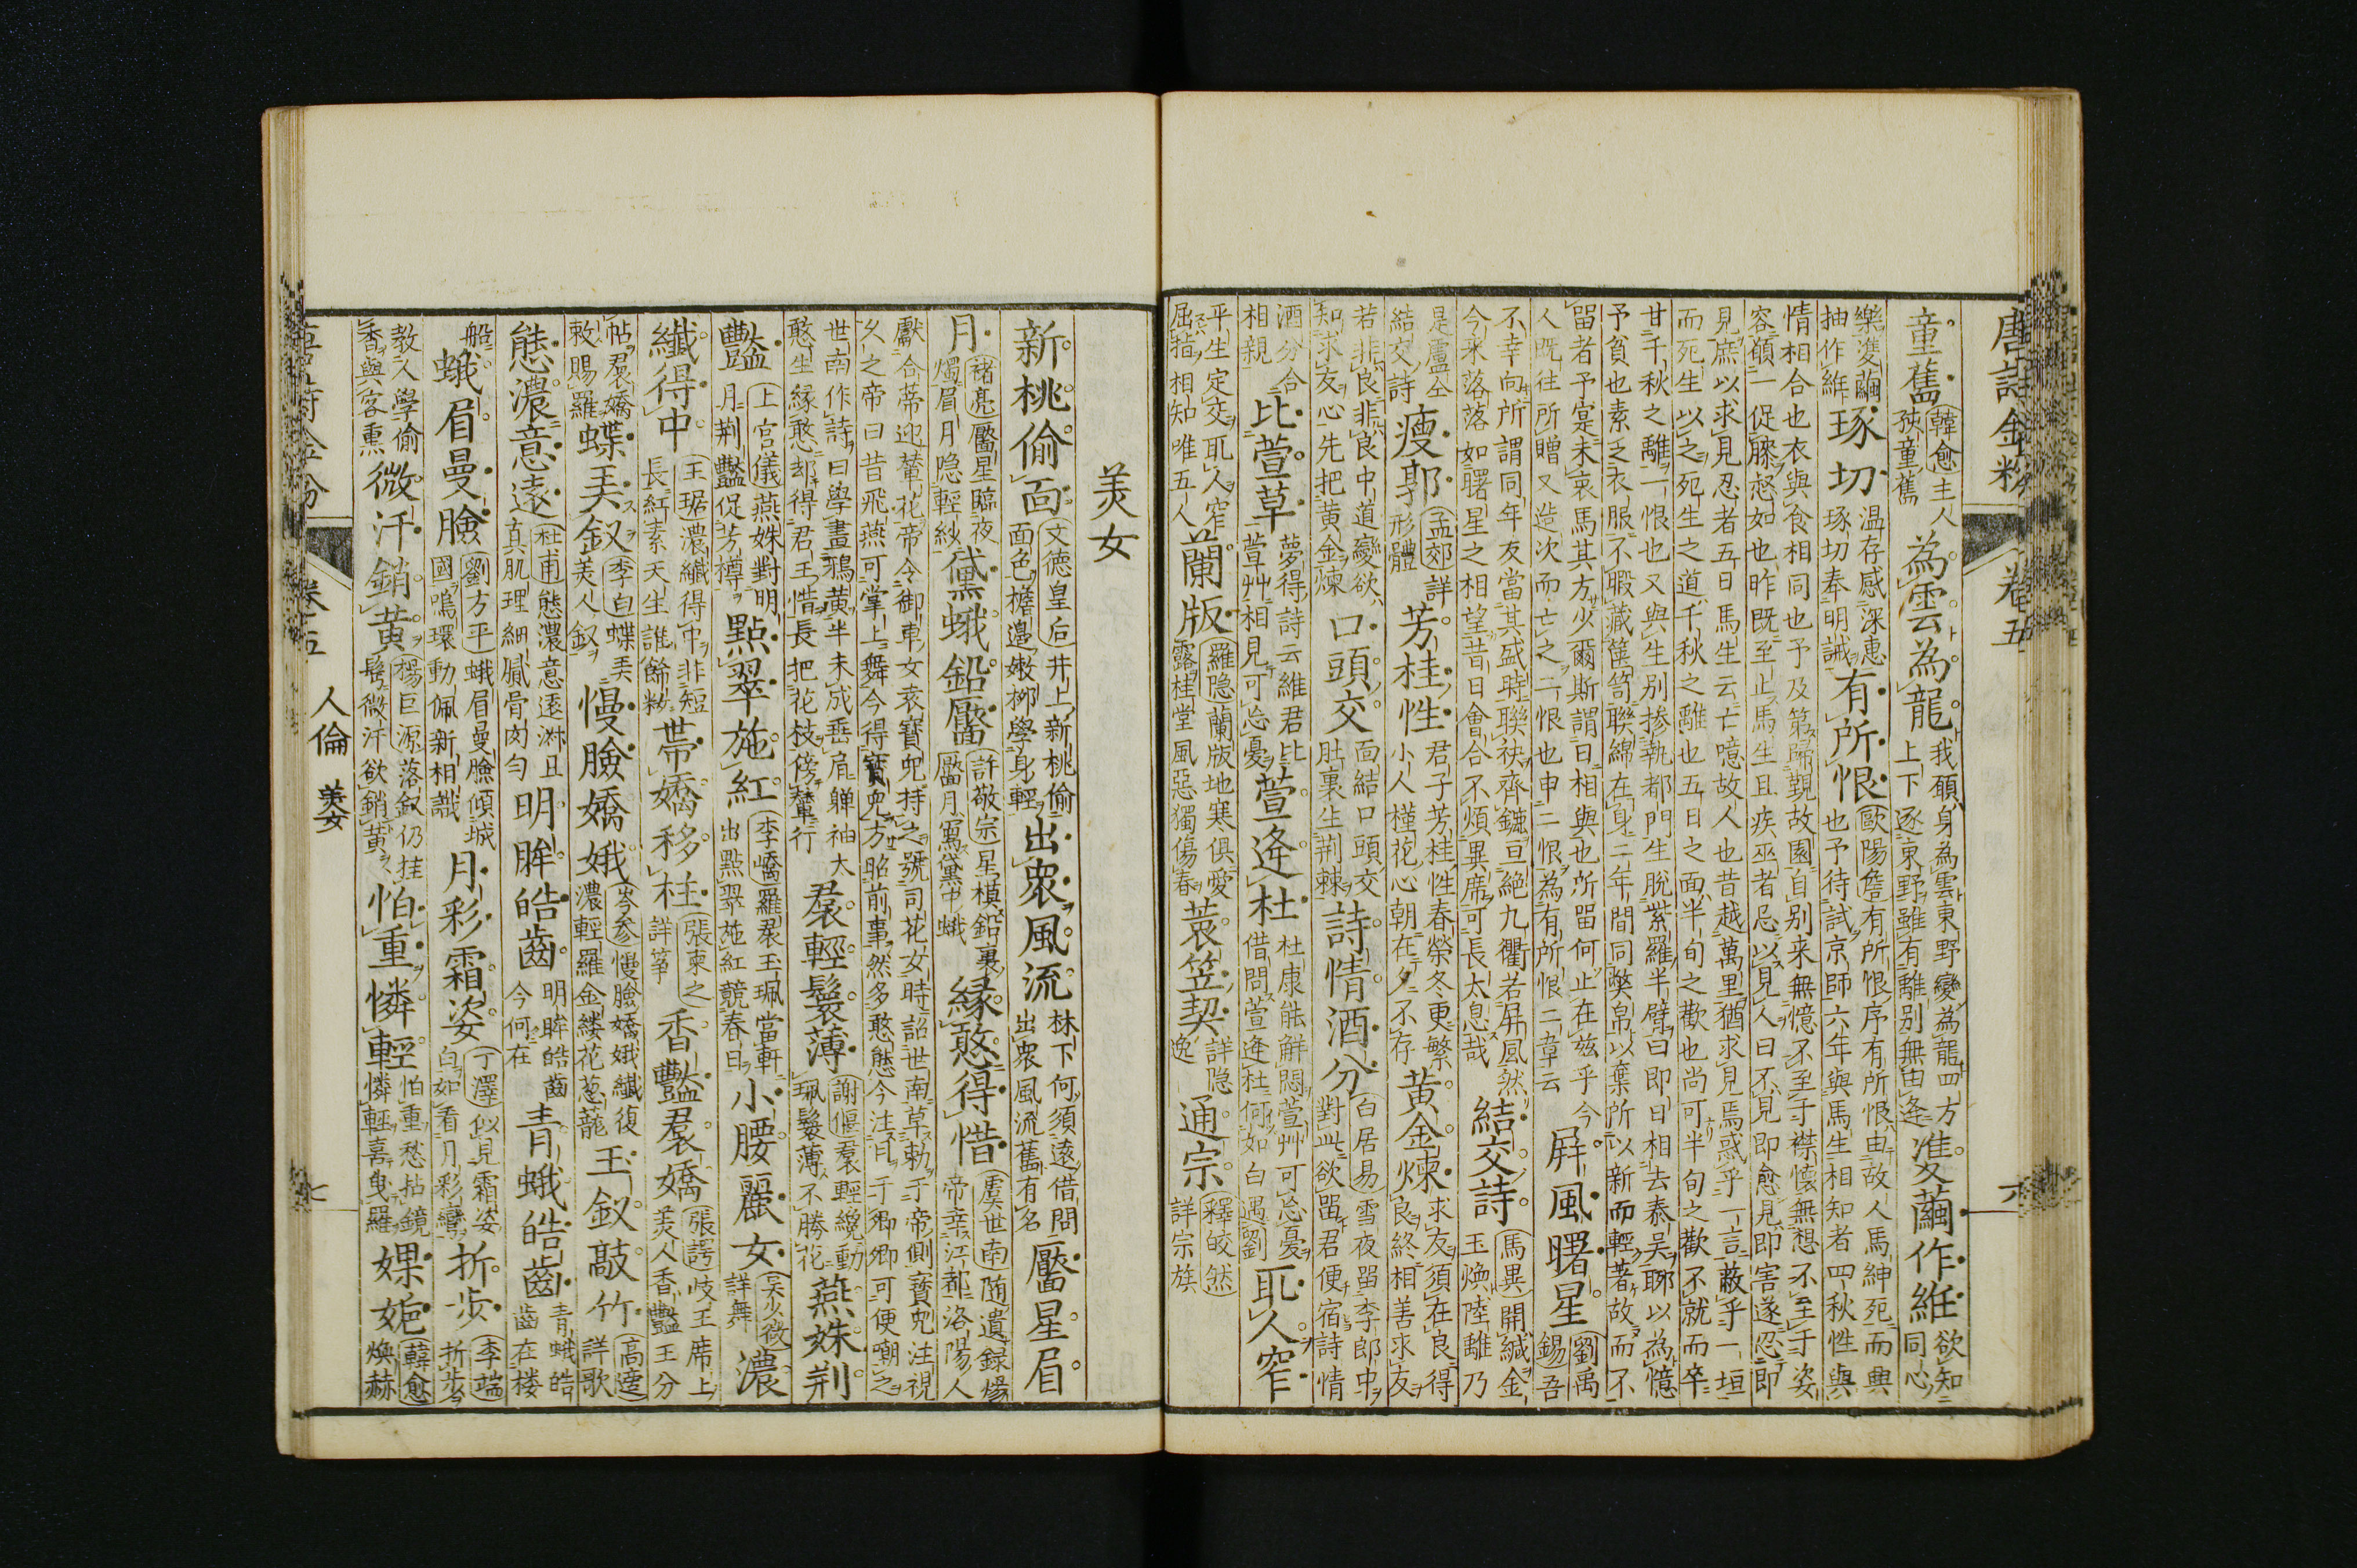 唐詩金粉 卷五 六
童舊 韓愈主人 狹童舊 為雲為龍 我願身為雲東野變為龍四方 上下逐東野雖有離別無由逢 雙繭作維 欲知 同心
樂雙繭 抽作維 琢切 温存感深惠 琢切奉明誡 有所恨 歐陽詹有所恨序有所恨由故人馬紳死而興 也予待試京師六年與馬生相知者四秋性與
情相合也衣與食相同也予及第歸覲故園自別来無憶不至于襟懐無想不至于姿
容頔一促膝怒如也昨既至止馬生且疾巫者忌以見人曰不見即愈見即害遂忍即
見庶以求見忍者五日馬生云亡噫故人也昔越萬里猶求見焉惑乎一言蔽乎一垣
而死生以之死生之道千秋之離也五日之面半旬之歡也尚可半旬之歡不就而卒
甘千秋之離一恨也又與生別摻執都門生脱紫羅半臂曰即日相去泰吴聊以為憶
予貧也素乏衣服不暇藏篋笥聯綿在身二年間同獘帛以棄所以新而輕著故而不
留者予寔未衷馬其方少爾斯謂曰相與也所留何止在兹乎今
人既往所贈又造次而亡之二恨也申二恨為有所恨二章云 屛風曙星 劉禹 錫吾
不幸向所謂同年友當其盛時聯袂齊鑣亘絶九衢若屏風然
今来落落如曙星之相望昔日會合不煩異席可長太息哉 結交詩 馬異開緘金 玉煥陸離乃
是盧仝 結交詩 瘦郭 孟郊詳 形體 芳桂性 君子芳桂性春榮冬更繁 小人槿花心朝在夕不存 黄金煉 求友須在良得 良終相善求友
若非良非良中道變欲 知求友心先把黄金煉 口頭交 面結口頭交 肚裏生荆棘 詩情酒分 白居易雪夜留李郎中 對此欲留君便宿詩情
酒分合 相親 比萱草 夢得詩云維君比 萱艸相見可忘憂 萱逢杜 杜康能解悶萱艸可忘憂 借問萱逢杜何如白遇劉 耴人窄
平生定交耴人窄 屈指相知唯五人 蘭版 羅隐蘭版地寒俱愛 露桂堂風惡獨傷春 蓑笠契 詳隐 逸 通宗 釋皎然 詳宗族
美女
新桃偷面 文徳皇后井上新桃偷 面色檐邉嫩柳學身輕 出衆風流 林下何須遠借問 出衆風流舊有名 靨星眉
月 褚亮靨星臨夜 燭眉月隐輕紗 黛蛾鉛靨 許敬宗星模鉛裏 靨月寫黛中蛾 緣憨得惜 虞世南随遺録煬 帝幸江都洛陽人
獻合蒂迎輦花帝令御車女袁寶兒持之號司花女時詔世南草勅于帝側寳兒注視
久之帝曰昔飛燕可掌上舞今得寳兒方昭前事然多憨態今注目于卿卿可便嘲之
世南作詩曰學畫鴉黄半未成垂肩嚲袖大
憨生緣憨却得君王惜長把花枝傍輦行 羣輕鬟薄 謝偃羣輕纔動 珮鬟薄不勝花 燕姝荆
豔 上官儀燕姝對明 月荆豔促芳樽 點翠施紅 李嶠羅裠玉珮當軒 出點翠施紅競春日 小腰麗女 吴少微 詳舞 濃
纖得中 王琚濃纎得中非短 長紅素天生誰餙粉 帶嬌移柱 張柬之 詳箏 香豔裠嬌 張諤岐王席上 美人香豔王分
帖裠嬌 敕賜羅 蝶弄釵 李白蝶弄 美人釵 慢臉嬌娥 岑参慢臉嬌娥纎復 濃輕羅金縷花葱蘢 玉釵敲竹 高適 詳歌
態濃意遠 杜甫態濃意遠淋且 真肌理細膩骨肉匀 明眸皓齒 明眸皓齒 今何在 青蛾皓齒 青蛾皓 齒在楼
船 蛾眉曼臉 劉方平蛾眉曼臉傾城 國鳴環動佩新相識 月彩霜姿 丁澤似見霜姿 白如看月彩彎 折歩 李端 折歩
教人學偷 香與客熏 微汗銷黄 楊巨源落釵仍挂 髩微汗欲銷黄 怕重憐輕 怕重愁拈鏡 憐輕喜曳羅 婐㛂 韓愈 煥赫
唐詩金粉 卷五 人倫 美女 七